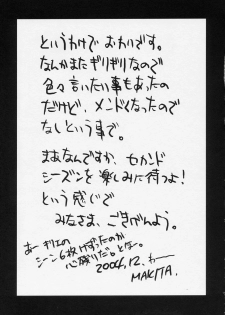 というわけで おわりです。
なんかまたギリギリなので
色々言いたい事もあったの
だけど、メンドくなったので
なしという事で。
まぁなんですか、セカンド
シーズンを楽しみに待つよ!
という感じで
みなさま、ごきげんよう。
あー
シーン6枚けずったのが
心残りだ。とな。
2004.12.
MAKITA.